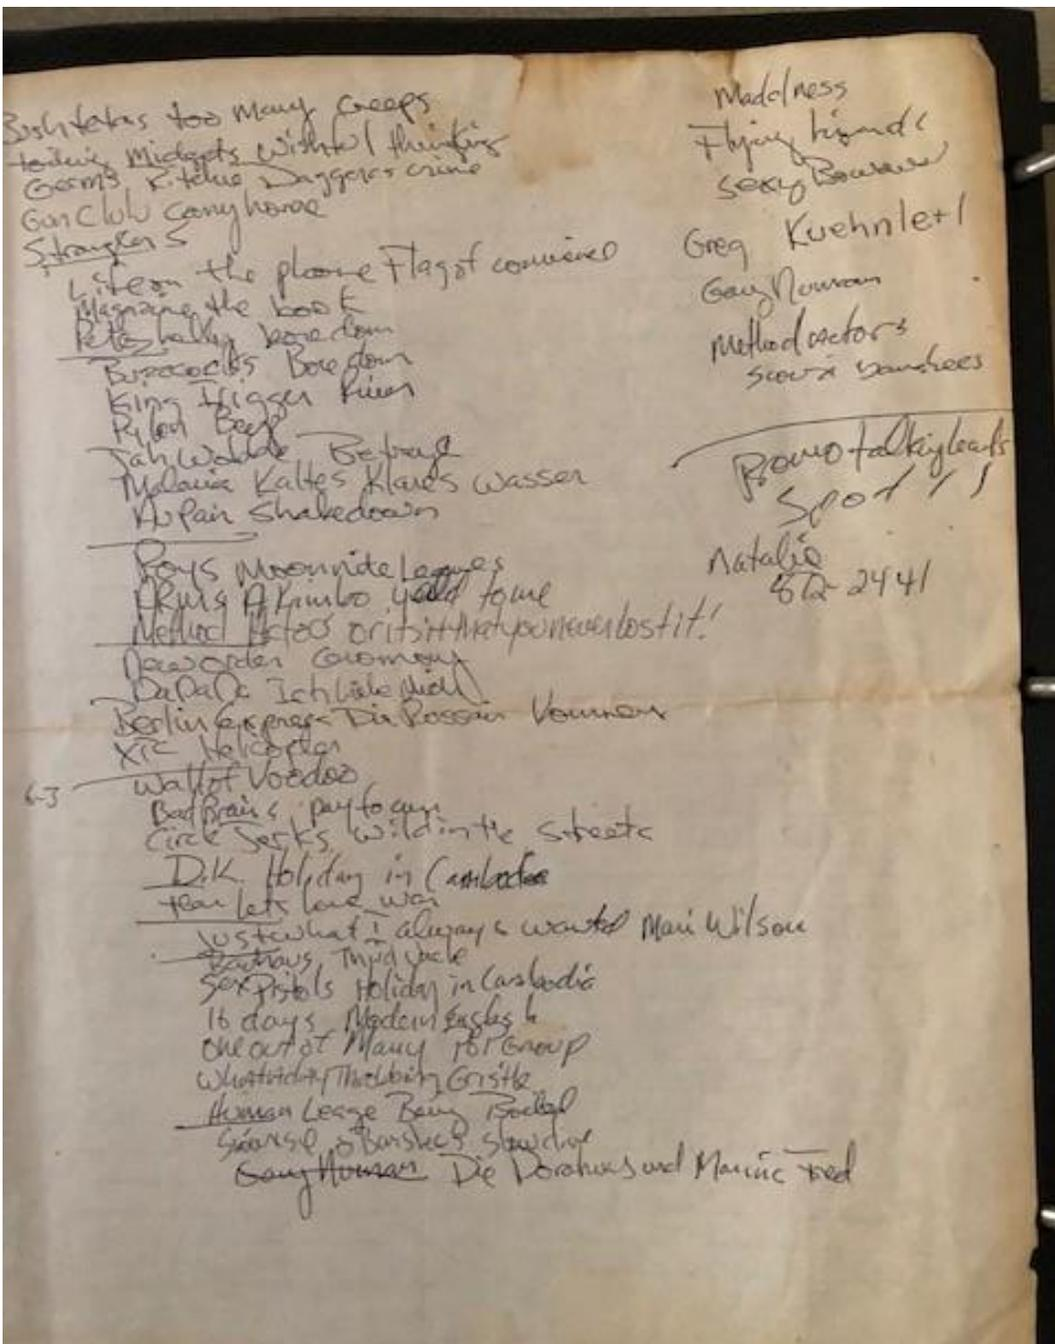 Bushtetras too Many Creeps
Midgets Wishful thinking
Germs, Ritchie Daggers crime
Gun Club Carry home
Stranglers
Life on the phone Flag of convienced
Magazine the book
Pete Shelley boredom
Buzzcocks Boredom
King Trigger River
Pylon Beep
Jah Wobble Betrayl
Malaria Kaltes Klares Wasser
Au Pairs Shakedown
Boys Moonnite Leaves
Arms Akimbo yeild to me
Method Actors or it's that you never lost it!
New order Ceromony
Da Da Da Ich liebe dich
Berlin Express Die Russian
XTC Helicopter
6-3
Wall of Voodoo
Bad Brains pay to cum
Circle Jerks, Wild in the Streets
D.K. Holiday in Cambodia
Fear lets have War
Just what I always wanted Mari Wilson
Bauhaus, Third Uncle
Sex Pistols Holiday in Cambodia
16 days Modern English
One out of Many Pop Group
What a day Throbbing Gristle
Human Leage Being Boiled
Siouxsie & Banshees slowdive
Gary Numan Die Doraus und Marinic Fred
Maddness
Flying Lizards
Sexy Bowwow
Greg Kuehnletl
Gary Numan
Method actors
Sioux banshees
Promo talking heads
Spot 11
Natalie
2441